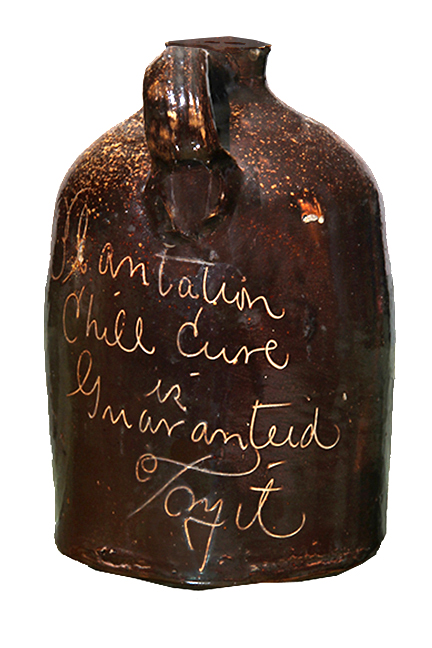 Plantation
Chill Cure
is
Guaranteed
Try it